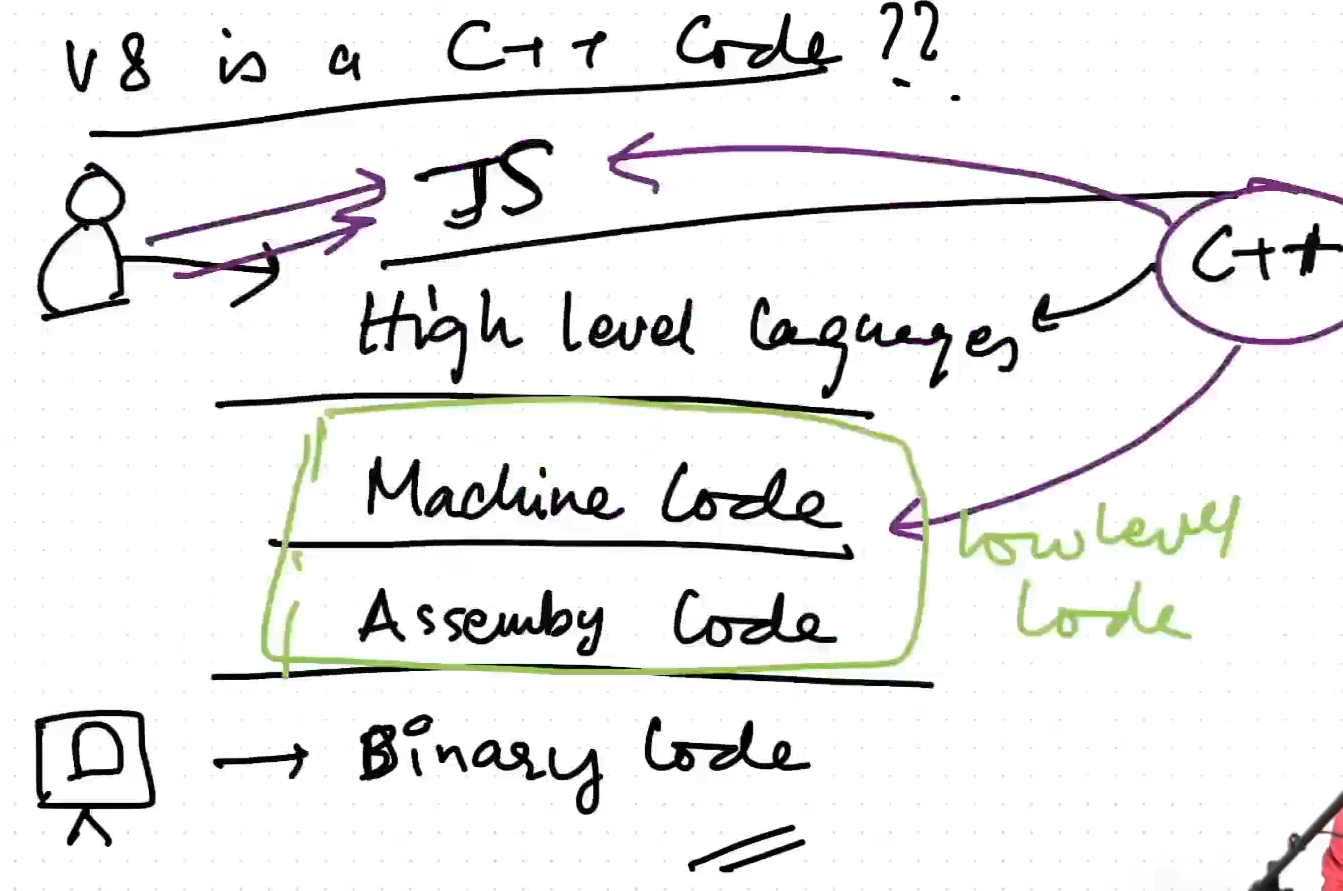 V8 is a C++ Code ??
JS
C++
High level laguages
Machine Code
Low level
Code
Assemby Code
Binary Code